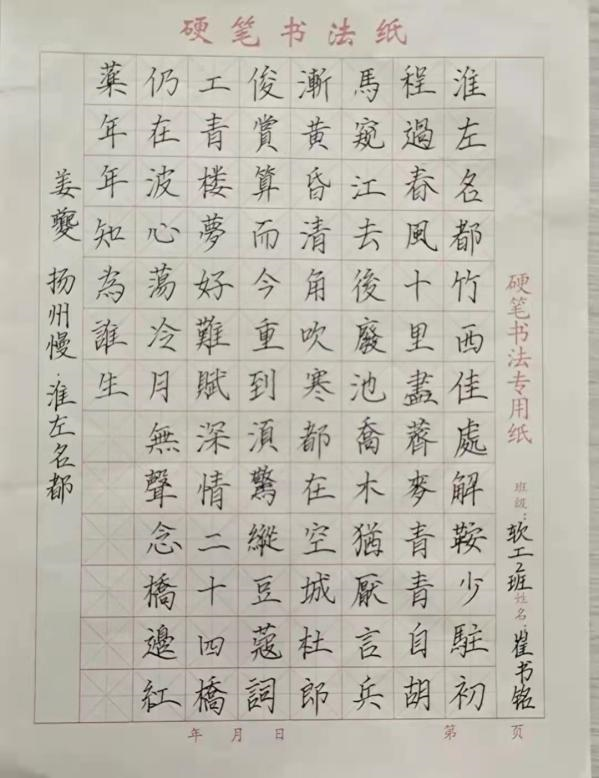 硬笔书法纸
硬笔书法专用纸
班级：软工2班 姓名：崔书铭
淮左名都竹西佳處解鞍少駐初
程過春風十里盡薺麥青青自胡
馬窺江去後廢池喬木猶厭言兵
漸黄昏清角吹寒都在空城杜郎
俊賞算而今重到須驚縱豆蔻詞
工青楼夢好難賦深情二十四橋
仍在波心蕩冷月無聲念橋邊紅
藥年年知為誰生
姜夔 扬州慢·淮左名都
年 月 日 第 页